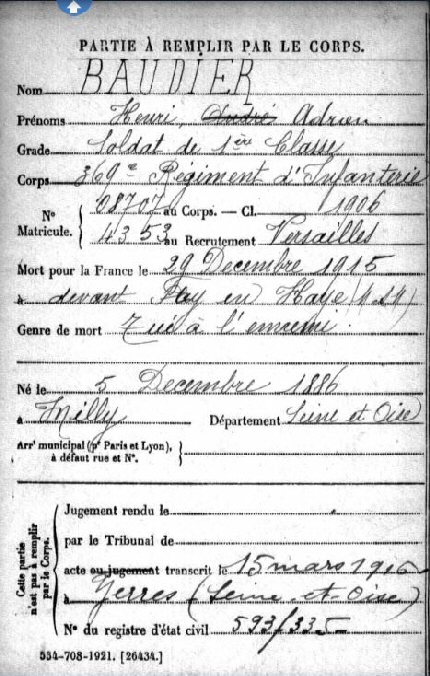 PARTIE À REMPLIR PAR LE CORPS.
Nom BAUDIER
Prénoms Henri, André Adrien
Grade Soldat de 1ère Classe
Corps 369e Régiment d'Infanterie
N° 08707 au Corps. — Cl. 1906
Matricule. 4353 au Recrutement Versailles
Mort pour la France le 29 Decembre 1915
à devant Fay en Haye (M M)
Genre de mort Tué à l'ennemi
Né le 5 Decembre 1886
à Milly Département Seine et Oise
Arrt municipal (pr Paris et Lyon),
à défaut rue et N°.
Cette partie n'est pas à remplir par le Corps.
Jugement rendu le
par le Tribunal de
acte ou jugement transcrit le 15 mars 1916
à Yerres (Seine et Oise)
N° du registre d'état civil 593/335
534-708-1921. [26434.]